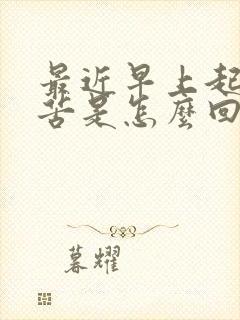 最近早上起
苦是怎麼回
暮耀